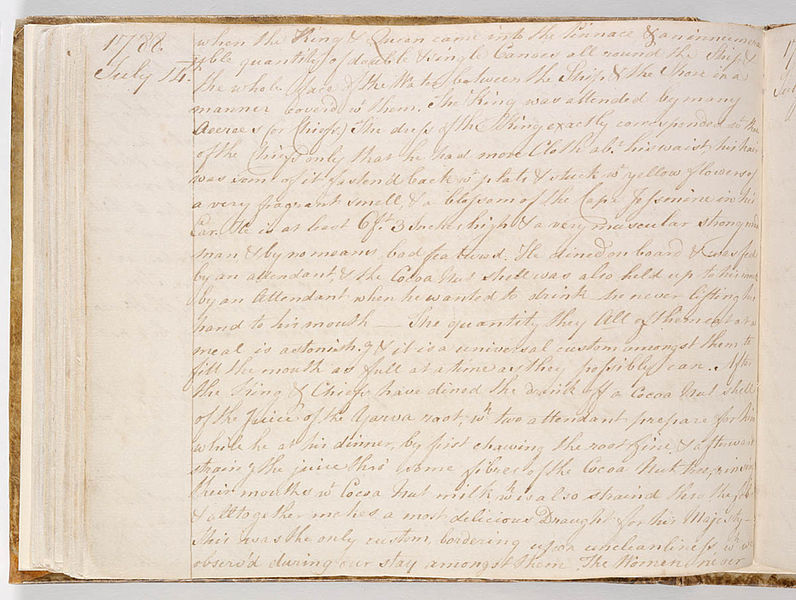 1788.
July 14th.
when the King & Queen came into the Pinnace & an innumera
ble quantity of double & single Canoes all round the Ship &
the whole space of the Water between the Ship & the Shore in a
manner coverd wt them. The King was attended by many
Aerees (or Chiefs) The dress of the King exactly corresponded wt that
of the Chiefs only that he had more Cloth abt his waist, his hair
was some of it fasten'd back wt plats & stuck wt yellow flowers of
a very fragrant smell, & a blossom of the Cape Jessmine in his
Ear. He is at least 6ft 3 Inches high & a very muscular strong
man & by no means bad featured. He dined on board & was fed
by an attendant, & the Cocoa Nut shell was also held up to his
by an Attendant when he wanted to drink he never lifting his
hand to his mouth — The quantity they All of them eat at a
meal is astonishg & it is a universal custom amongst them to
fill the mouth as full at a time as they possibly can. After
the King & Chiefs have dined the drink off a Cocoa Nut shell
of the Juice of the Yarva root, wh two attendant prepare for him
while he at his dinner, by first chawing the root fine, & afterwards
straing the juice thro' some fibres of the Cocoa Nut tree, rinsing
their mouths wt Cocoa Nut milk wh is also straind thro the
& alltogether makes a most delicious Draught for his Majesty —
this was the only custom, bordering upon uncleanliness, wh we
observ'd during our stay amongst them. The Women never